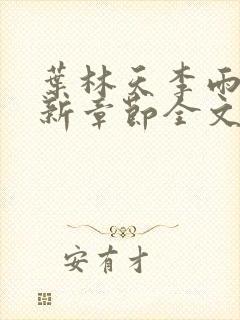 葉林天李雨
新章節全文
安有才